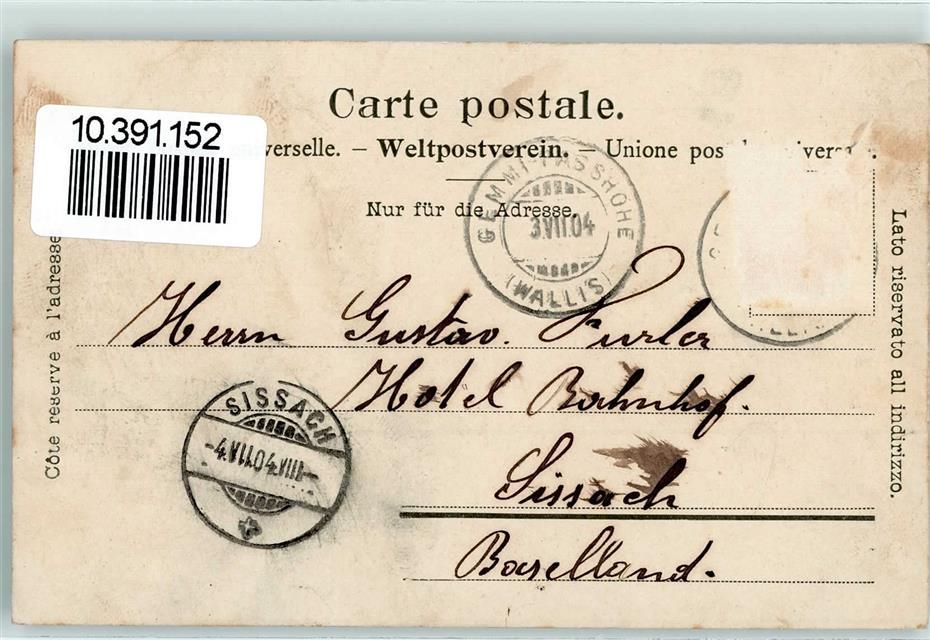 10.391.152
Carte postale.
verselle. – Weltpostverein. – Unione pos
Nur für die Adresse.
GEMMI-PASSHÖHE
3.VII.04
(WALLIS)
Côte reservé à l'adresse
Lato riservato all indirizzo.
Herrn Gustav. Furler
Hotel Bahnhof.
Sissach
Baselland.
SISSACH